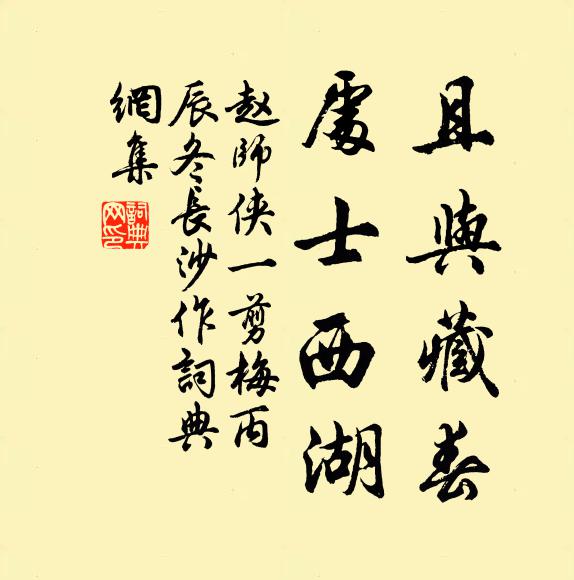 且與藏春
處士西湖
赵師俠一剪梅丙
辰冬長沙作詞典
網集
詞典
网印